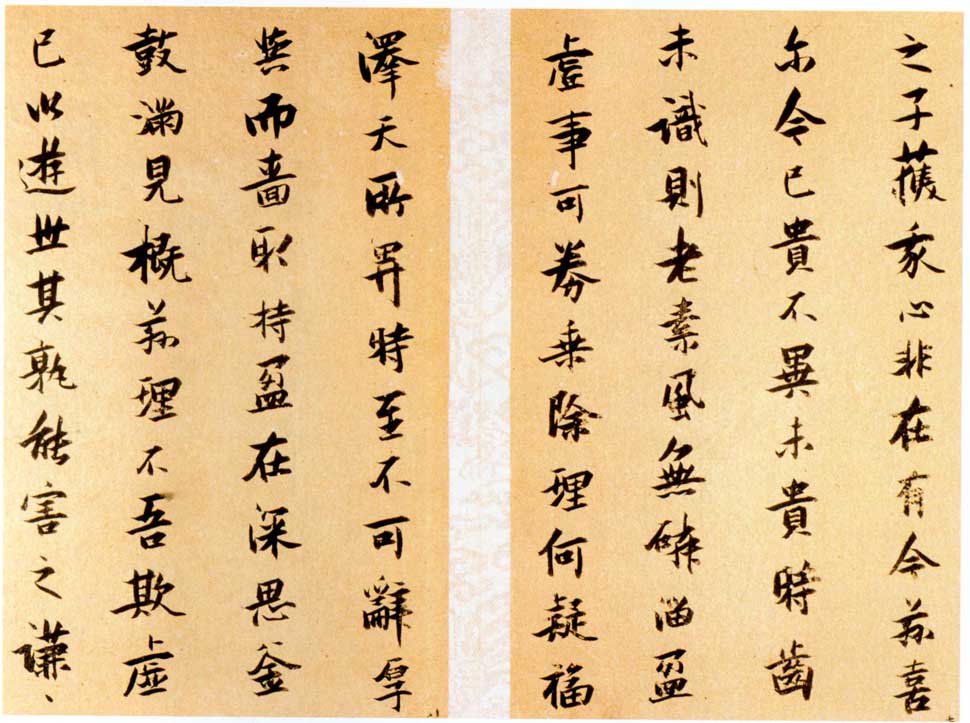 之子獲我心非在今兹喜
尔今已貴不異未貴時齒
未識則老素風無磷淄盈
虛事可券乘除理何疑福
澤天所畀時至不可辭厚
與而嗇取持盈在深思釜
鼓滿見概兹理不吾欺虛
已以遊世其孰能害之謙、